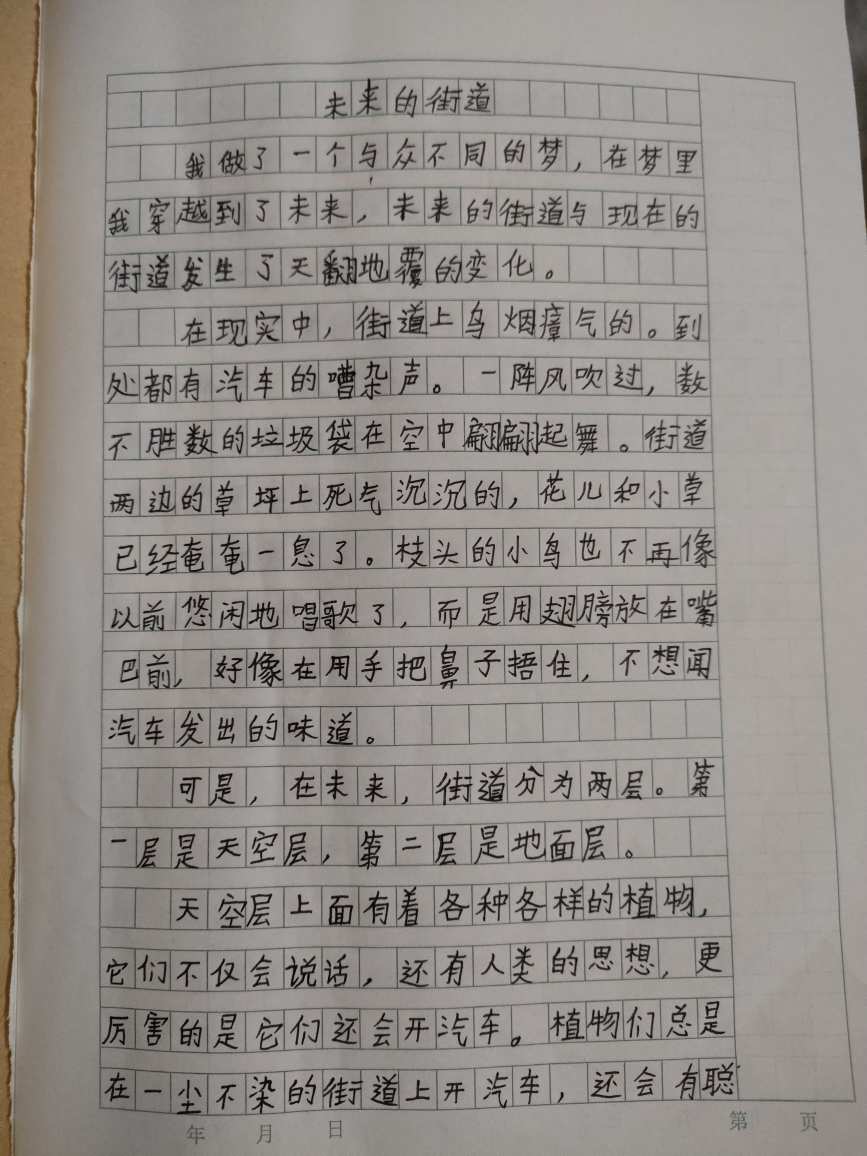 未来的街道
我做了一个与众不同的梦，在梦里
我穿越到了未来，未来的街道与现在的
街道发生了天翻地覆的变化。
在现实中，街道上乌烟瘴气的。到
处都有汽车的嘈杂声。一阵风吹过，数
不胜数的垃圾袋在空中翩翩起舞。街道
两边的草坪上死气沉沉的，花儿和小草
已经奄奄一息了。枝头的小鸟也不再像
以前悠闲地唱歌了，而是用翅膀放在嘴
巴前，好像在用手把鼻子捂住，不想闻
汽车发出的味道。
可是，在未来，街道分为两层。第
一层是天空层，第二层是地面层。
天空层上面有着各种各样的植物，
它们不仅会说话，还有人类的思想，更
厉害的是它们还会开汽车。植物们总是
在一尘不染的街道上开汽车，还会有聪
年 月 日 第 页